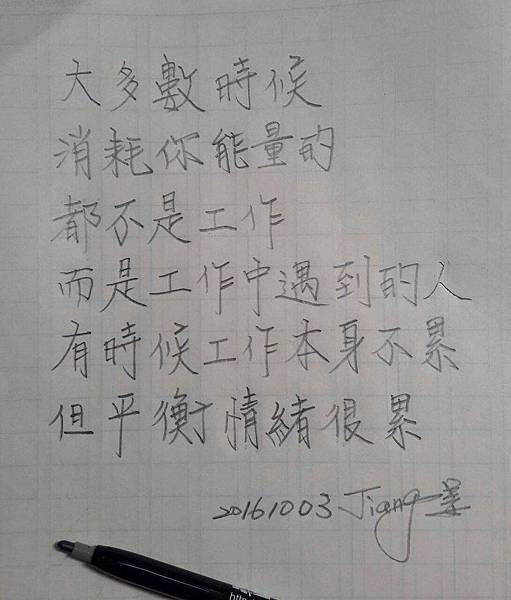 大多數時候
消耗你能量的
都不是工作
而是工作中遇到的人
有時候工作本身不累
但平衡情緒很累
20161003 Jiang
http